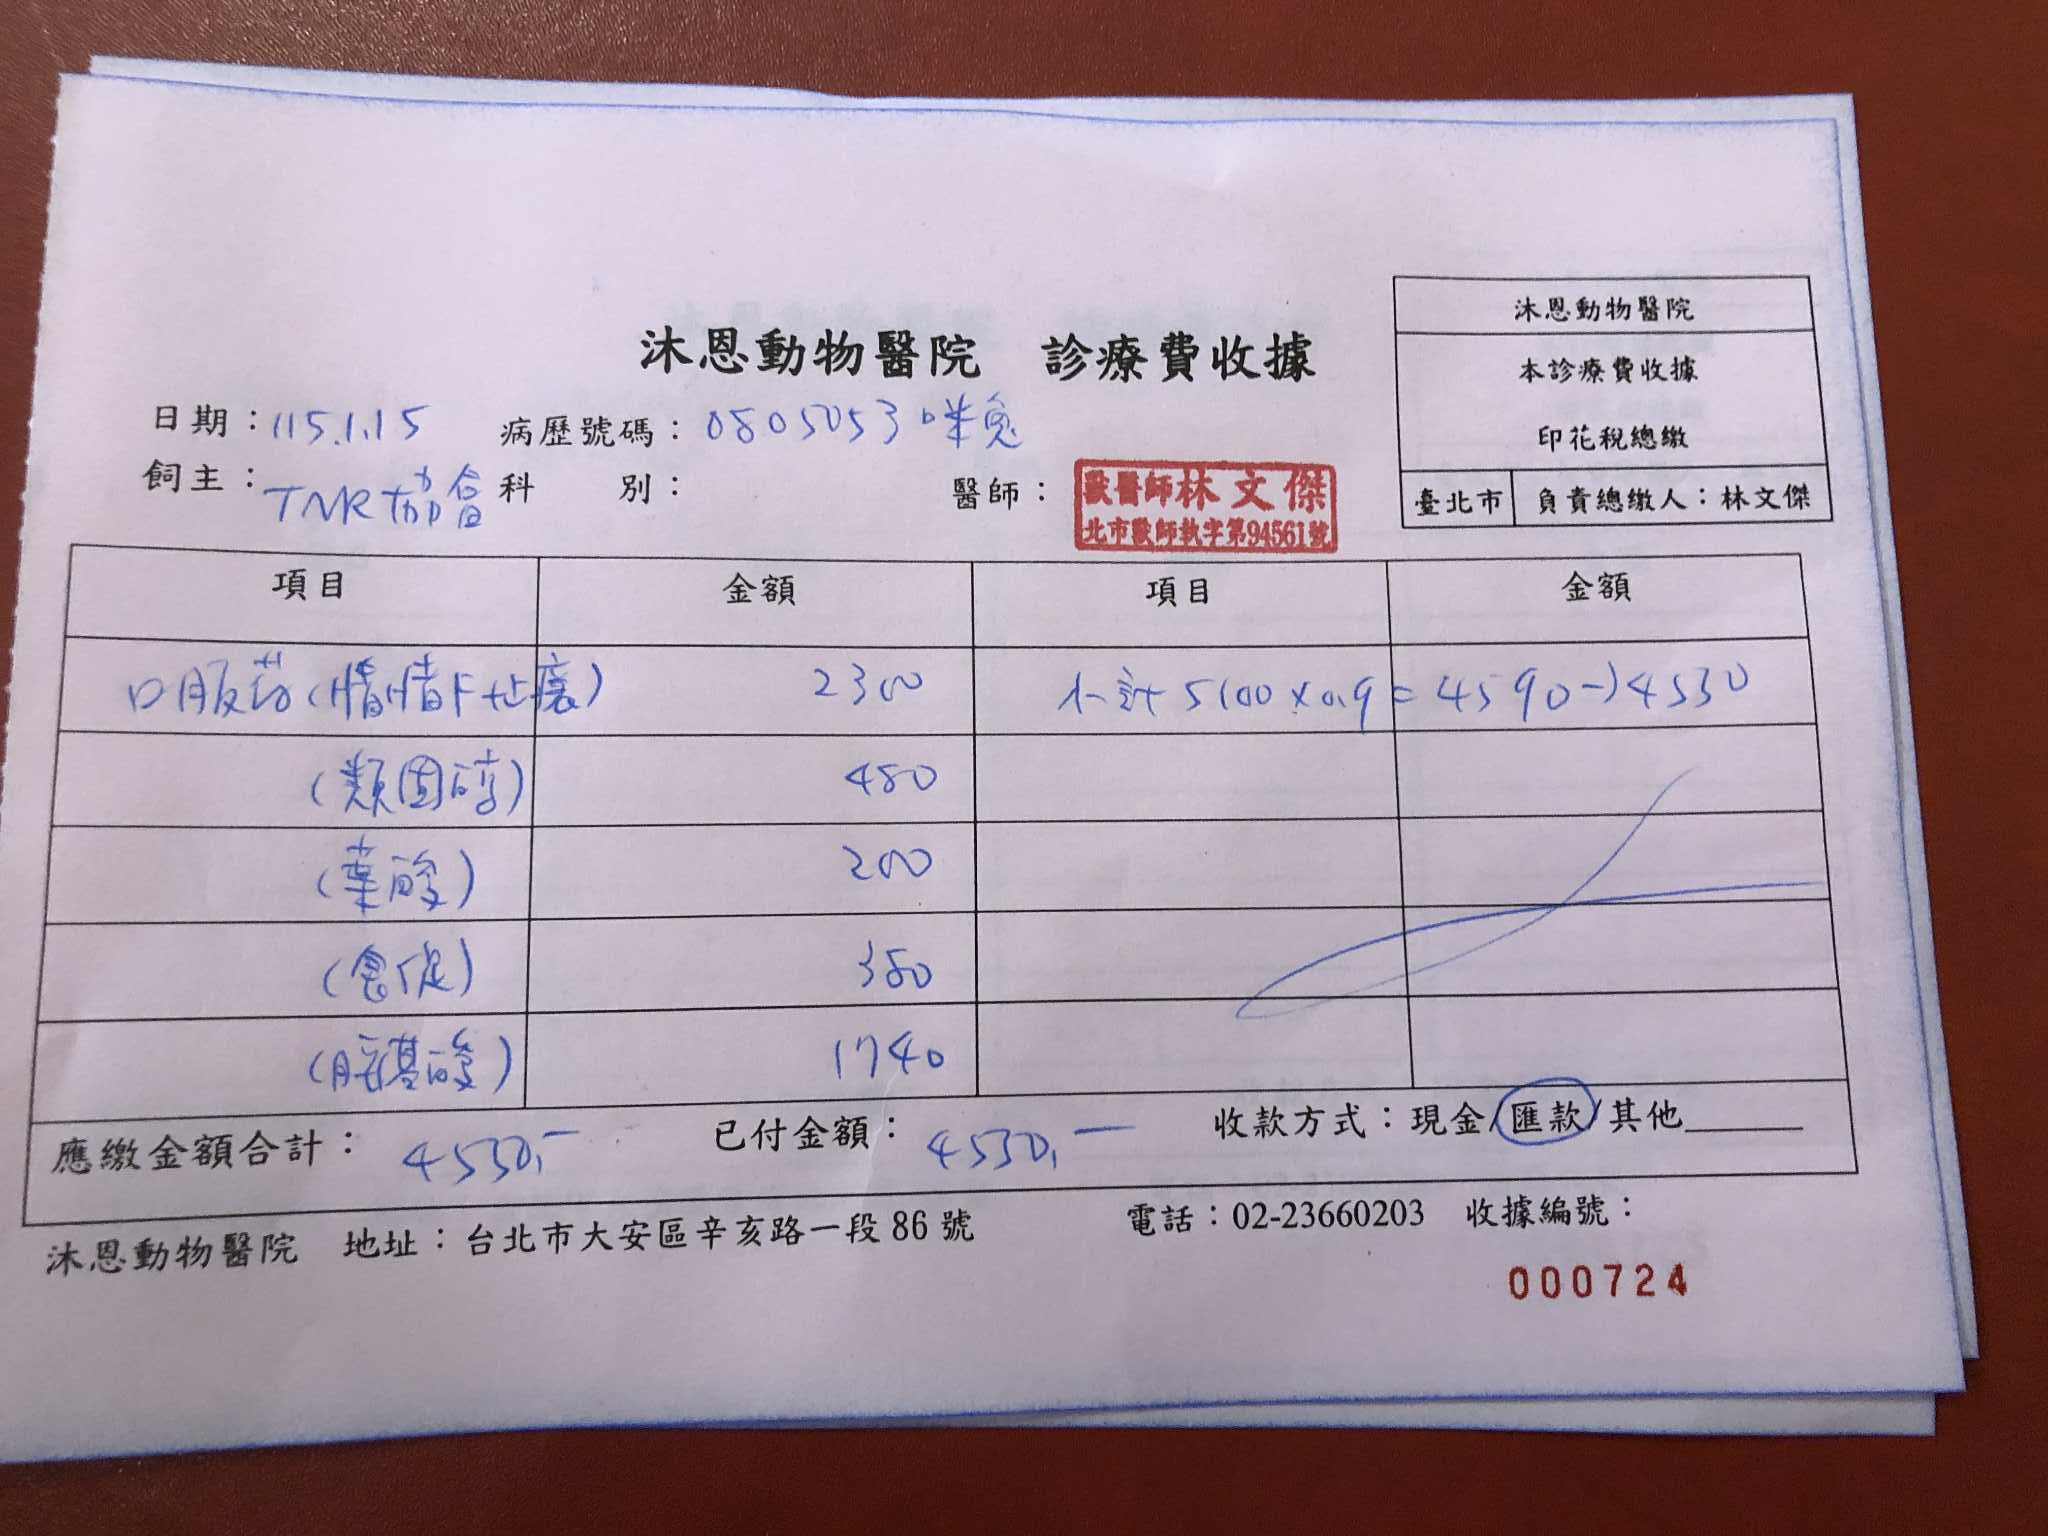 沐恩動物醫院
本診療費收據
印花稅總繳
臺北市 負責總繳人：林文傑
沐恩動物醫院 診療費收據
日期：115.1.15 病歷號碼：0805053 咪兔
飼主：TNR協會 科 別： 醫師：
獸醫師林文傑
北市獸師執字第94561號
項目 金額 項目 金額
口服葯( 止癢) 2300 小計 5100×0.9=4590→4530
(類固醇) 480
(葉酸) 200
(食促) 380
(胺基酸) 1740
應繳金額合計：4530,- 已付金額：4530,- 收款方式：現金/匯款/其他
沐恩動物醫院 地址：台北市大安區辛亥路一段86號 電話：02-23660203 收據編號：
000724